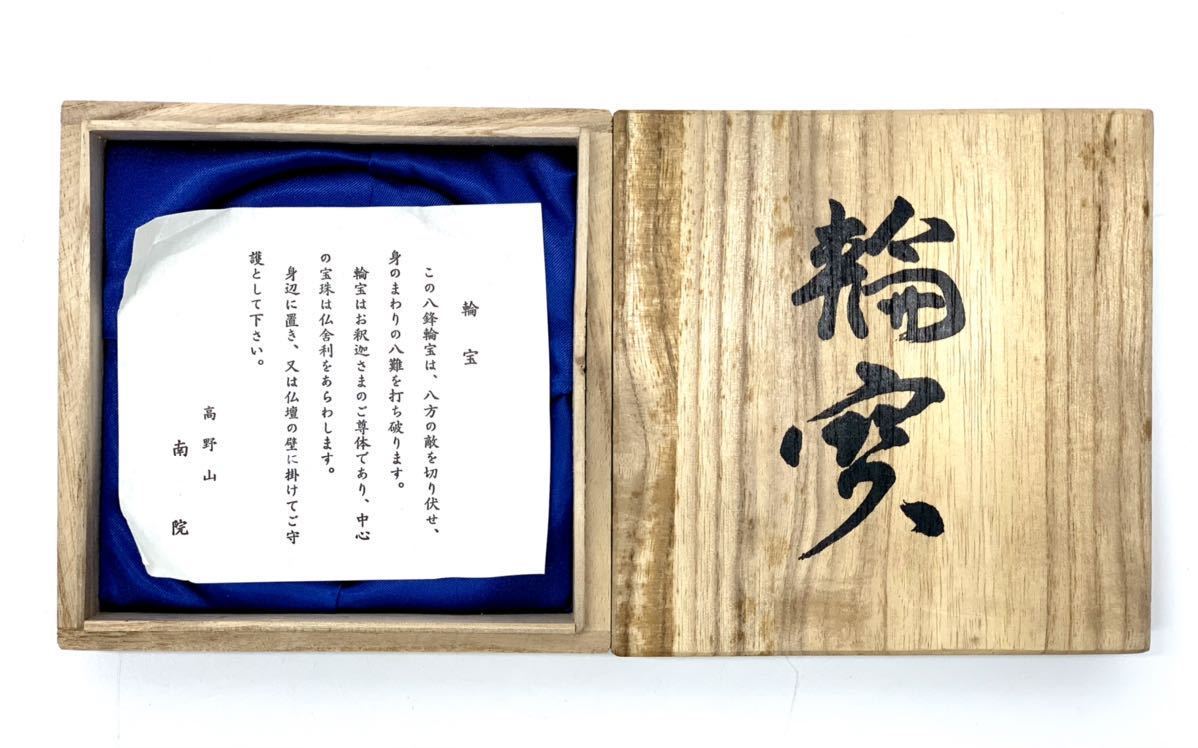 輪宝
この八鋒輪宝は、八方の敵を切り伏せ、
身のまわりの八難を打ち破ります。
輪宝はお釈迦さまのご尊体であり、中心
の宝珠は仏舎利をあらわします。
身辺に置き、又は仏壇の壁に掛けてご守
護として下さい。
高野山
南院
輪寳